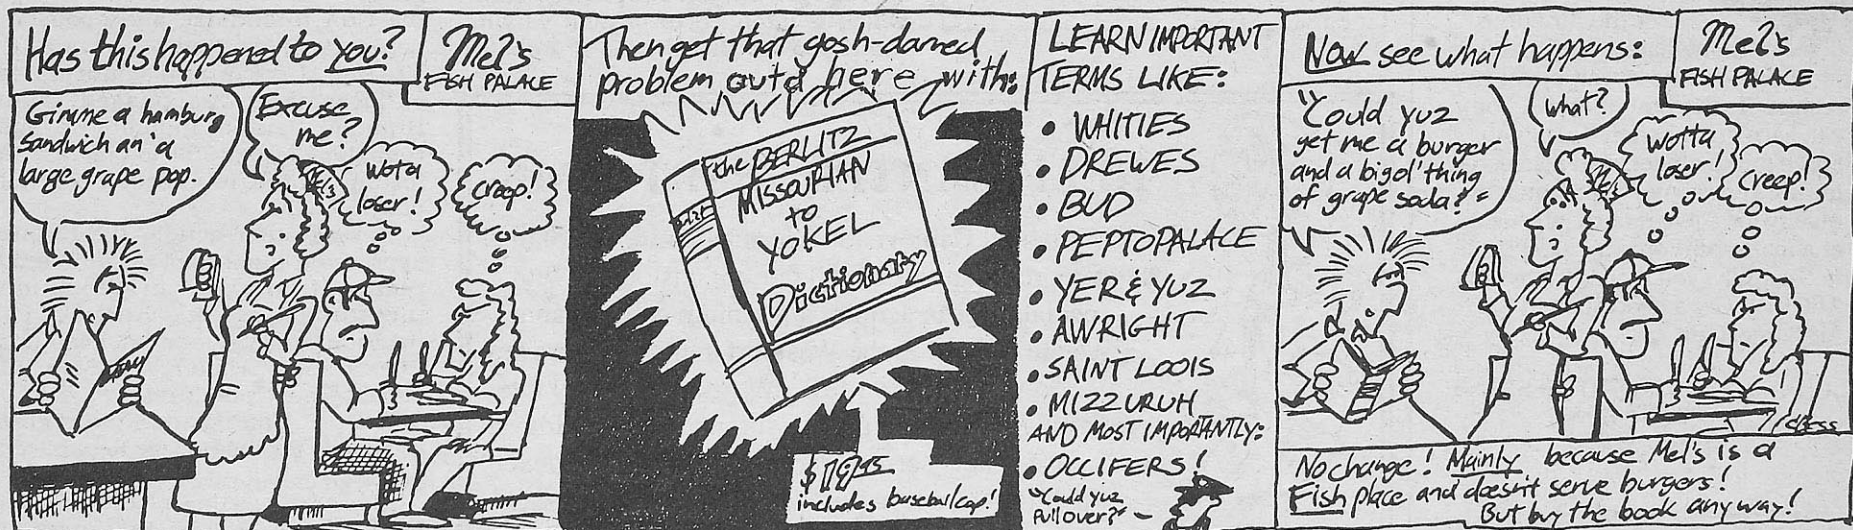 Has this happened to you?
Mel's
FISH PALACE
Gimme a hamburg
sandwich an' a
large grape pop.
Excuse
me?
Wotta
loser!
Creep!
Then get that gosh-darned
problem outa here with:
the BERLITZ
MISSOURIAN
to
YOKEL
Dictionary
$19.95
includes baseball cap!
LEARN IMPORTANT
TERMS LIKE:
• WHITIES
• DREWES
• BUD
• PEPTOPALACE
• YER & YUZ
• AWRIGHT
• SAINT LOOIS
• MIZZURUH
AND MOST IMPORTANTLY:
• OCCIFERS!
"Could yuz
pull over?" -
Now see what happens:
Mel's
FISH PALACE
"Could yuz
get me a burger
and a big ol' thing
of grape soda?"
What?
Wotta
loser!
Creep!
No change! Mainly because Mel's is a
Fish place and doesn't serve burgers!
But buy the book anyway!